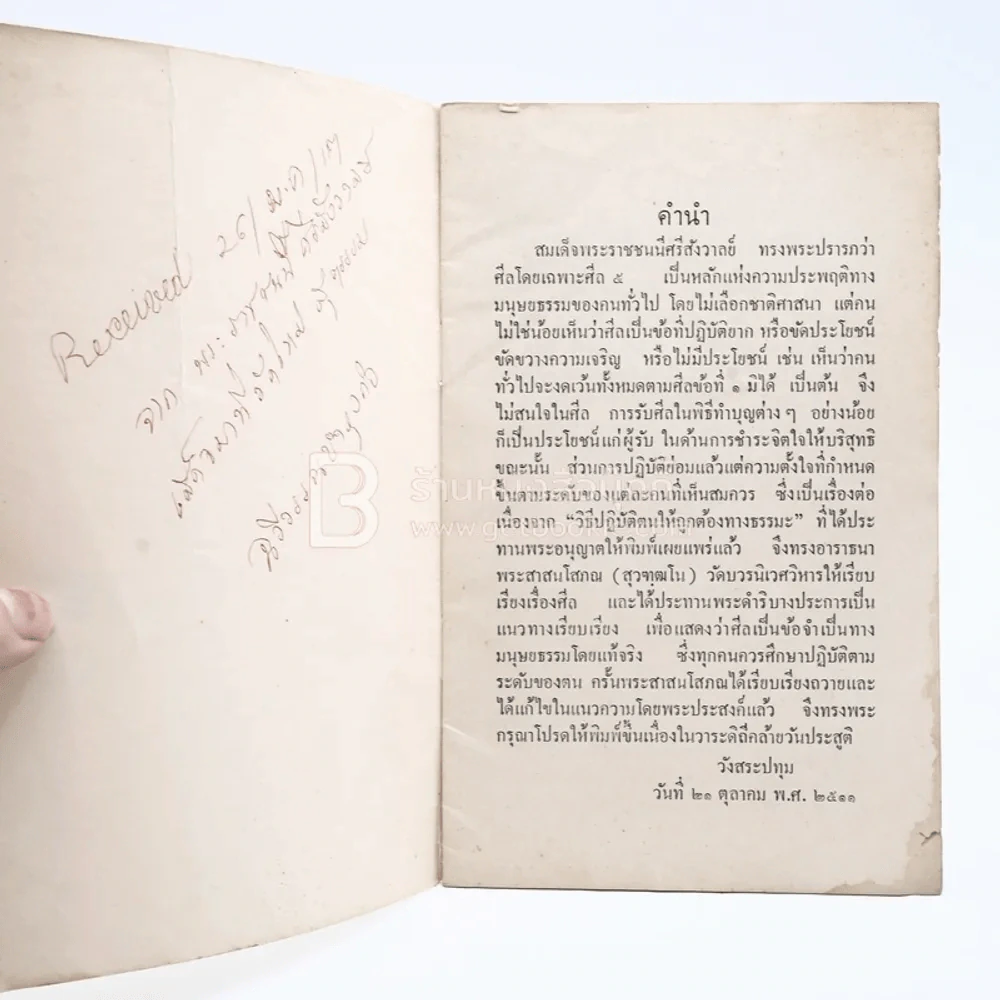 Received ๒๑/ พ.ค/๑๒
จาก พระ
คำนำ
สมเด็จพระราชชนนีศรีสังวาลย์ ทรงพระปรารภว่า
ศีลโดยเฉพาะศีล ๕ เป็นหลักแห่งความประพฤติทาง
มนุษยธรรมของคนทั่วไป โดยไม่เลือกชาติศาสนา แต่คน
ไม่ใช่น้อยเห็นว่าศีลเป็นข้อที่ปฏิบัติยาก หรือขัดประโยชน์
ขัดขวางความเจริญ หรือไม่มีประโยชน์ เช่น เห็นว่าคน
ทั่วไปจะงดเว้นทั้งหมดตามศีลข้อที่ ๑ มิได้ เป็นต้น จึง
ไม่สนใจในศีล การรับศีลในพิธีทำบุญต่าง ๆ อย่างน้อย
ก็เป็นประโยชน์แก่ผู้รับ ในด้านการชำระจิตใจให้บริสุทธิ
ขณะนั้น ส่วนการปฏิบัติย่อมแล้วแต่ความตั้งใจที่กำหนด
ขึ้นตามระดับของแต่ละคนที่เห็นสมควร ซึ่งเป็นเรื่องต่อ
เนื่องจาก “วิธีปฏิบัติตนให้ถูกต้องทางธรรมะ” ที่ได้ประ
ทานพระอนุญาตให้พิมพ์เผยแพร่แล้ว จึงทรงอาราธนา
พระสาสนโสภณ (สุวฑฺฒโน) วัดบวรนิเวศวิหารให้เรียบ
เรียงเรื่องศีล และได้ประทานพระดำริบางประการเป็น
แนวทางเรียบเรียง เพื่อแสดงว่าศีลเป็นข้อจำเป็นทาง
มนุษยธรรมโดยแท้จริง ซึ่งทุกคนควรศึกษาปฏิบัติตาม
ระดับของตน ครั้นพระสาสนโสภณได้เรียบเรียงถวายและ
ได้แก้ไขในแนวความโดยพระประสงค์แล้ว จึงทรงพระ
กรุณาโปรดให้พิมพ์ขึ้นเนื่องในวาระดิถีคล้ายวันประสูติ
วังสระปทุม
วันที่ ๒๑ ตุลาคม พ.ศ. ๒๕๑๑